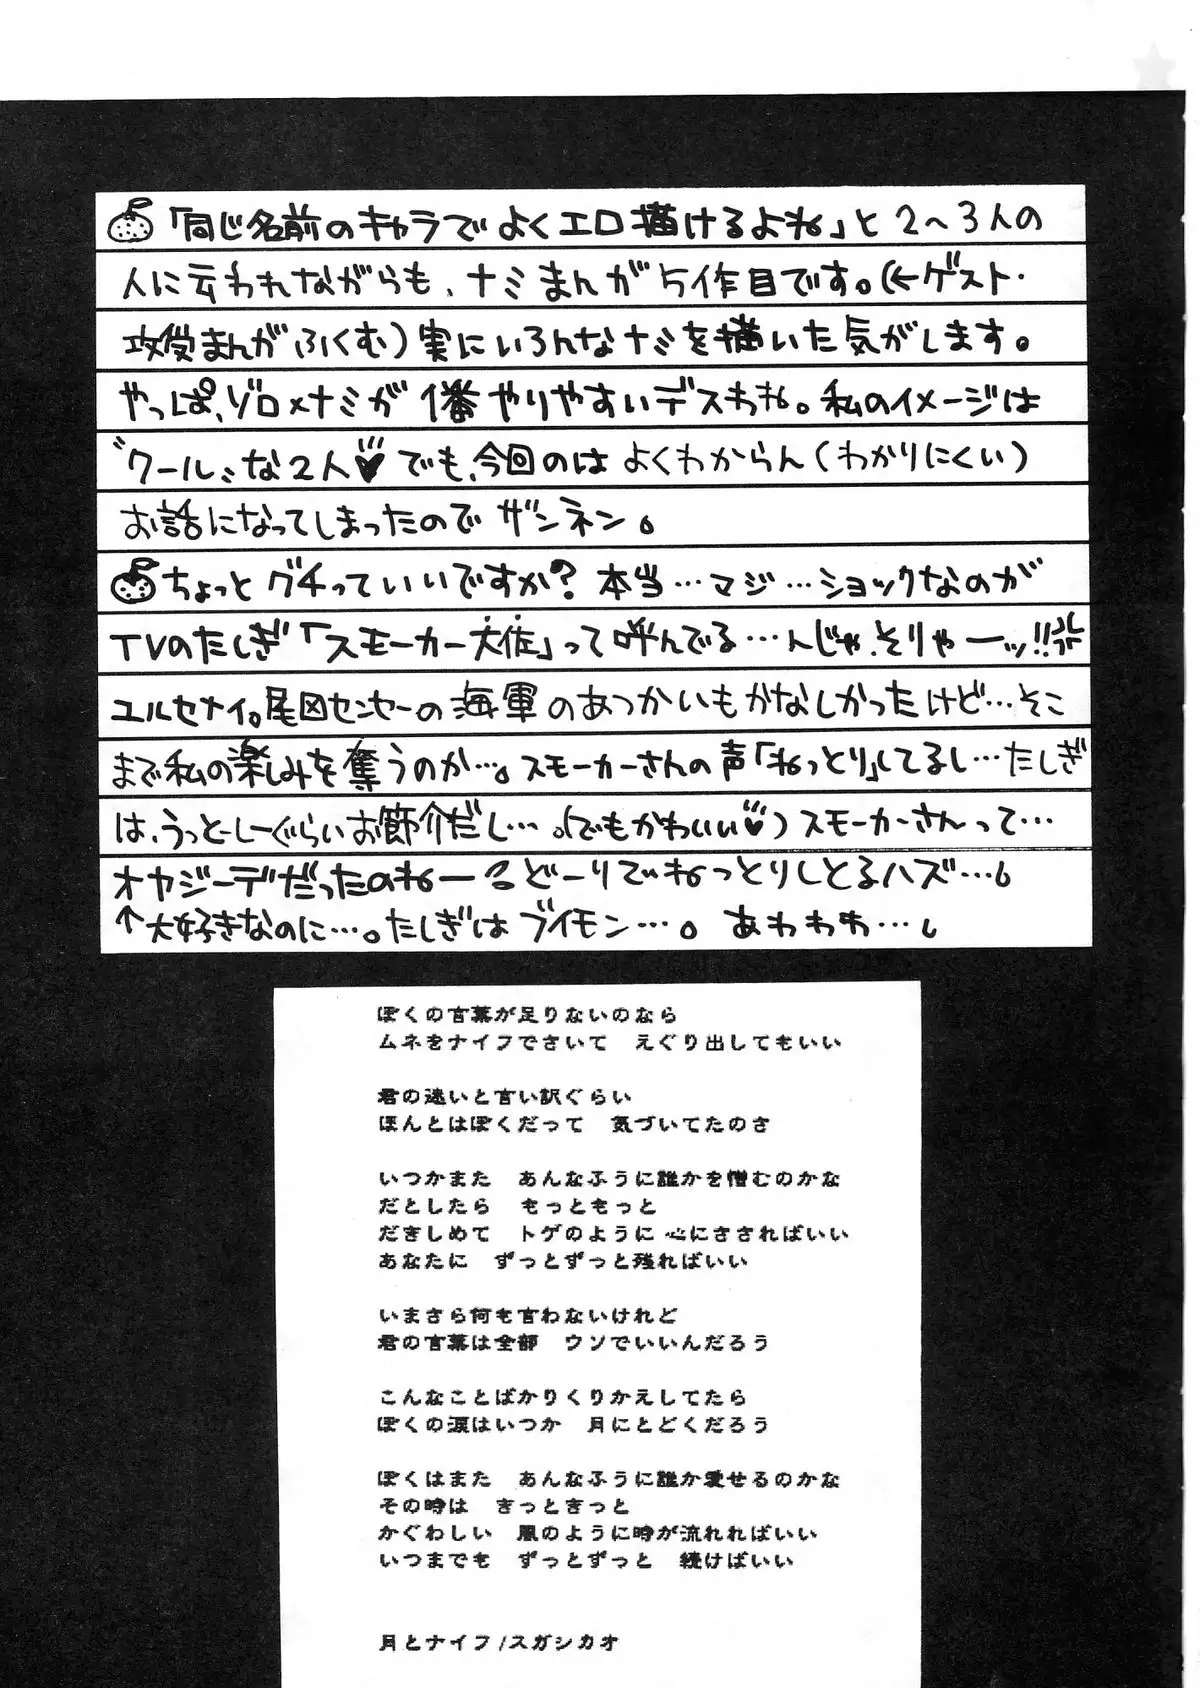 「同じ名前のキャラでよくエロ描けるよね」と2〜3人の
人に云われながらも、ナミまんが5作目です。(←ゲスト・
攻受まんがふくむ)実にいろんなナミを描いた気がします。
やっぱ、ゾロ×ナミが1番やりやすいデスわね。私のイメージは
"クール"な2人♥でも、今回のはよくわからん(わかりにくい)
お話になってしまったのでザンネン。
ちょっとグチっていいですか?本当…マジ…ショックなのが
TVのたしぎ「スモーカー大佐」って呼んでる…んじゃ、そりゃーッ!!
ユルセナイ。尾田センセーの海軍のあつかいもかなしかったけど…そこ
まで私の楽しみを奪うのか…。スモーカーさんの声「ねっとり」してるし…たしぎ
は、うっとーしーぐらいお節介だし…。(でもかわいい♥)スモーカーさんって…
オヤジーデだったのねー どーりでねっとりしとるハズ…。
↑大好きなのに…。たしぎはブイモン…。あわわわ…。
ぼくの言葉が足りないのなら
ムネをナイフでさいて　えぐり出してもいい
君の迷いと言い訳ぐらい
ほんとはぼくだって　気づいてたのさ
いつかまた　あんなふうに誰かを憎むのかな
だとしたら　もっともっと
だきしめて　トゲのように　心にささればいい
あなたに　ずっとずっと残ればいい
いまさら何も言わないけれど
君の言葉は全部　ウソでいいんだろう
こんなことばかりくりかえしてたら
ぼくの涙はいつか　月にとどくだろう
ぼくはまた　あんなふうに誰か愛せるのかな
その時は　きっときっと
かぐわしい　風のように時が流れればいい
いつまでも　ずっとずっと　続けばいい
月とナイフ/スガシカオ